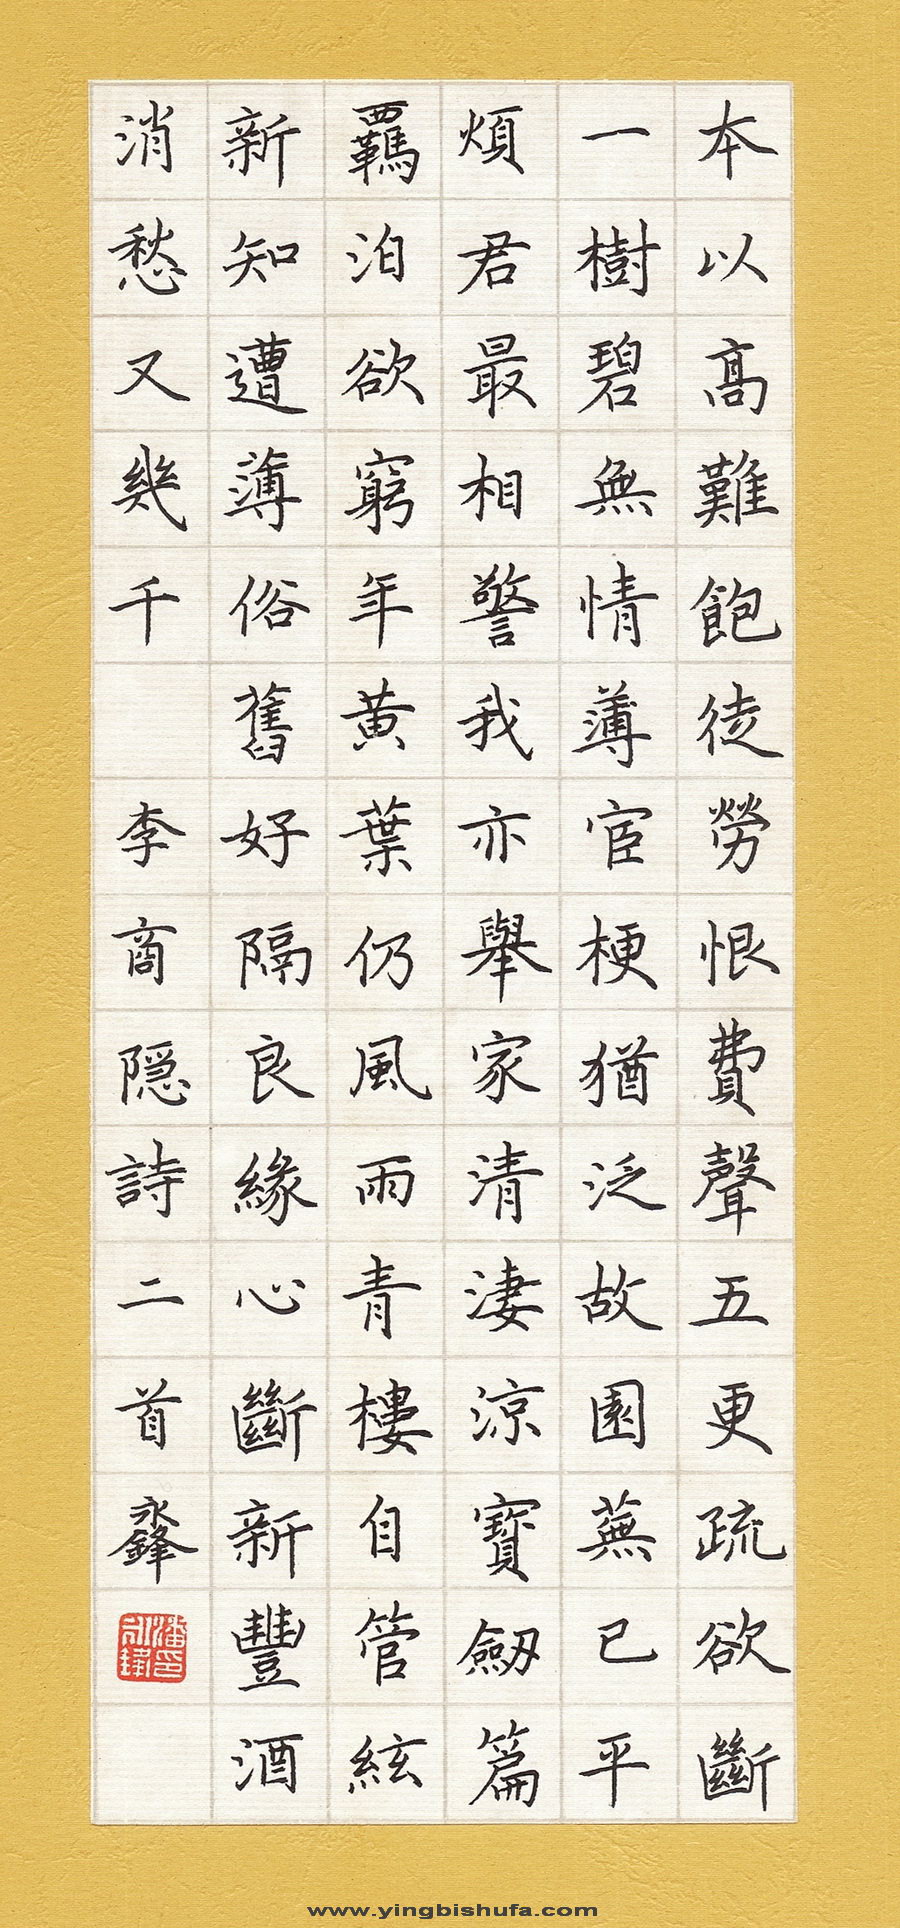 本以高難飽徒勞恨費聲五更疏欲斷
一樹碧無情薄宦梗猶泛故園蕪已平
煩君最相警我亦舉家清淒涼寶劒篇
羈泊欲窮年黄葉仍風雨青樓自管絃
新知遭薄俗舊好隔良緣心斷新豐酒
消愁又幾千 李商隱詩二首 永鋒
潘永鋒印
www.yingbishufa.com